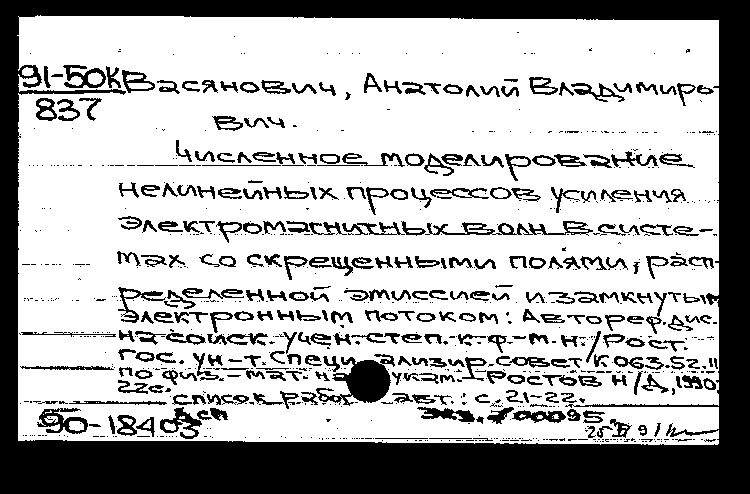 91-50К Васянович, Анатолий Владимиро-
837
вич.
Численное моделирование
нелинейных процессов усиления
электромагнитных волн в систе-
мах со скрещенными полями, расп-
ределенной эмиссией и замкнутым
электронным потоком: Автореф. дис.
на соиск. учен. степ. к. ф.-м. н. / Рост.
гос. ун-т. Специализир. совет К 063.52.11
по физ.-мат. наукам. - Ростов н/Д, 1990.
22с.
список работ авт.: с. 21-22.
90-18403 дсп Экз. 100095
25 IV 91